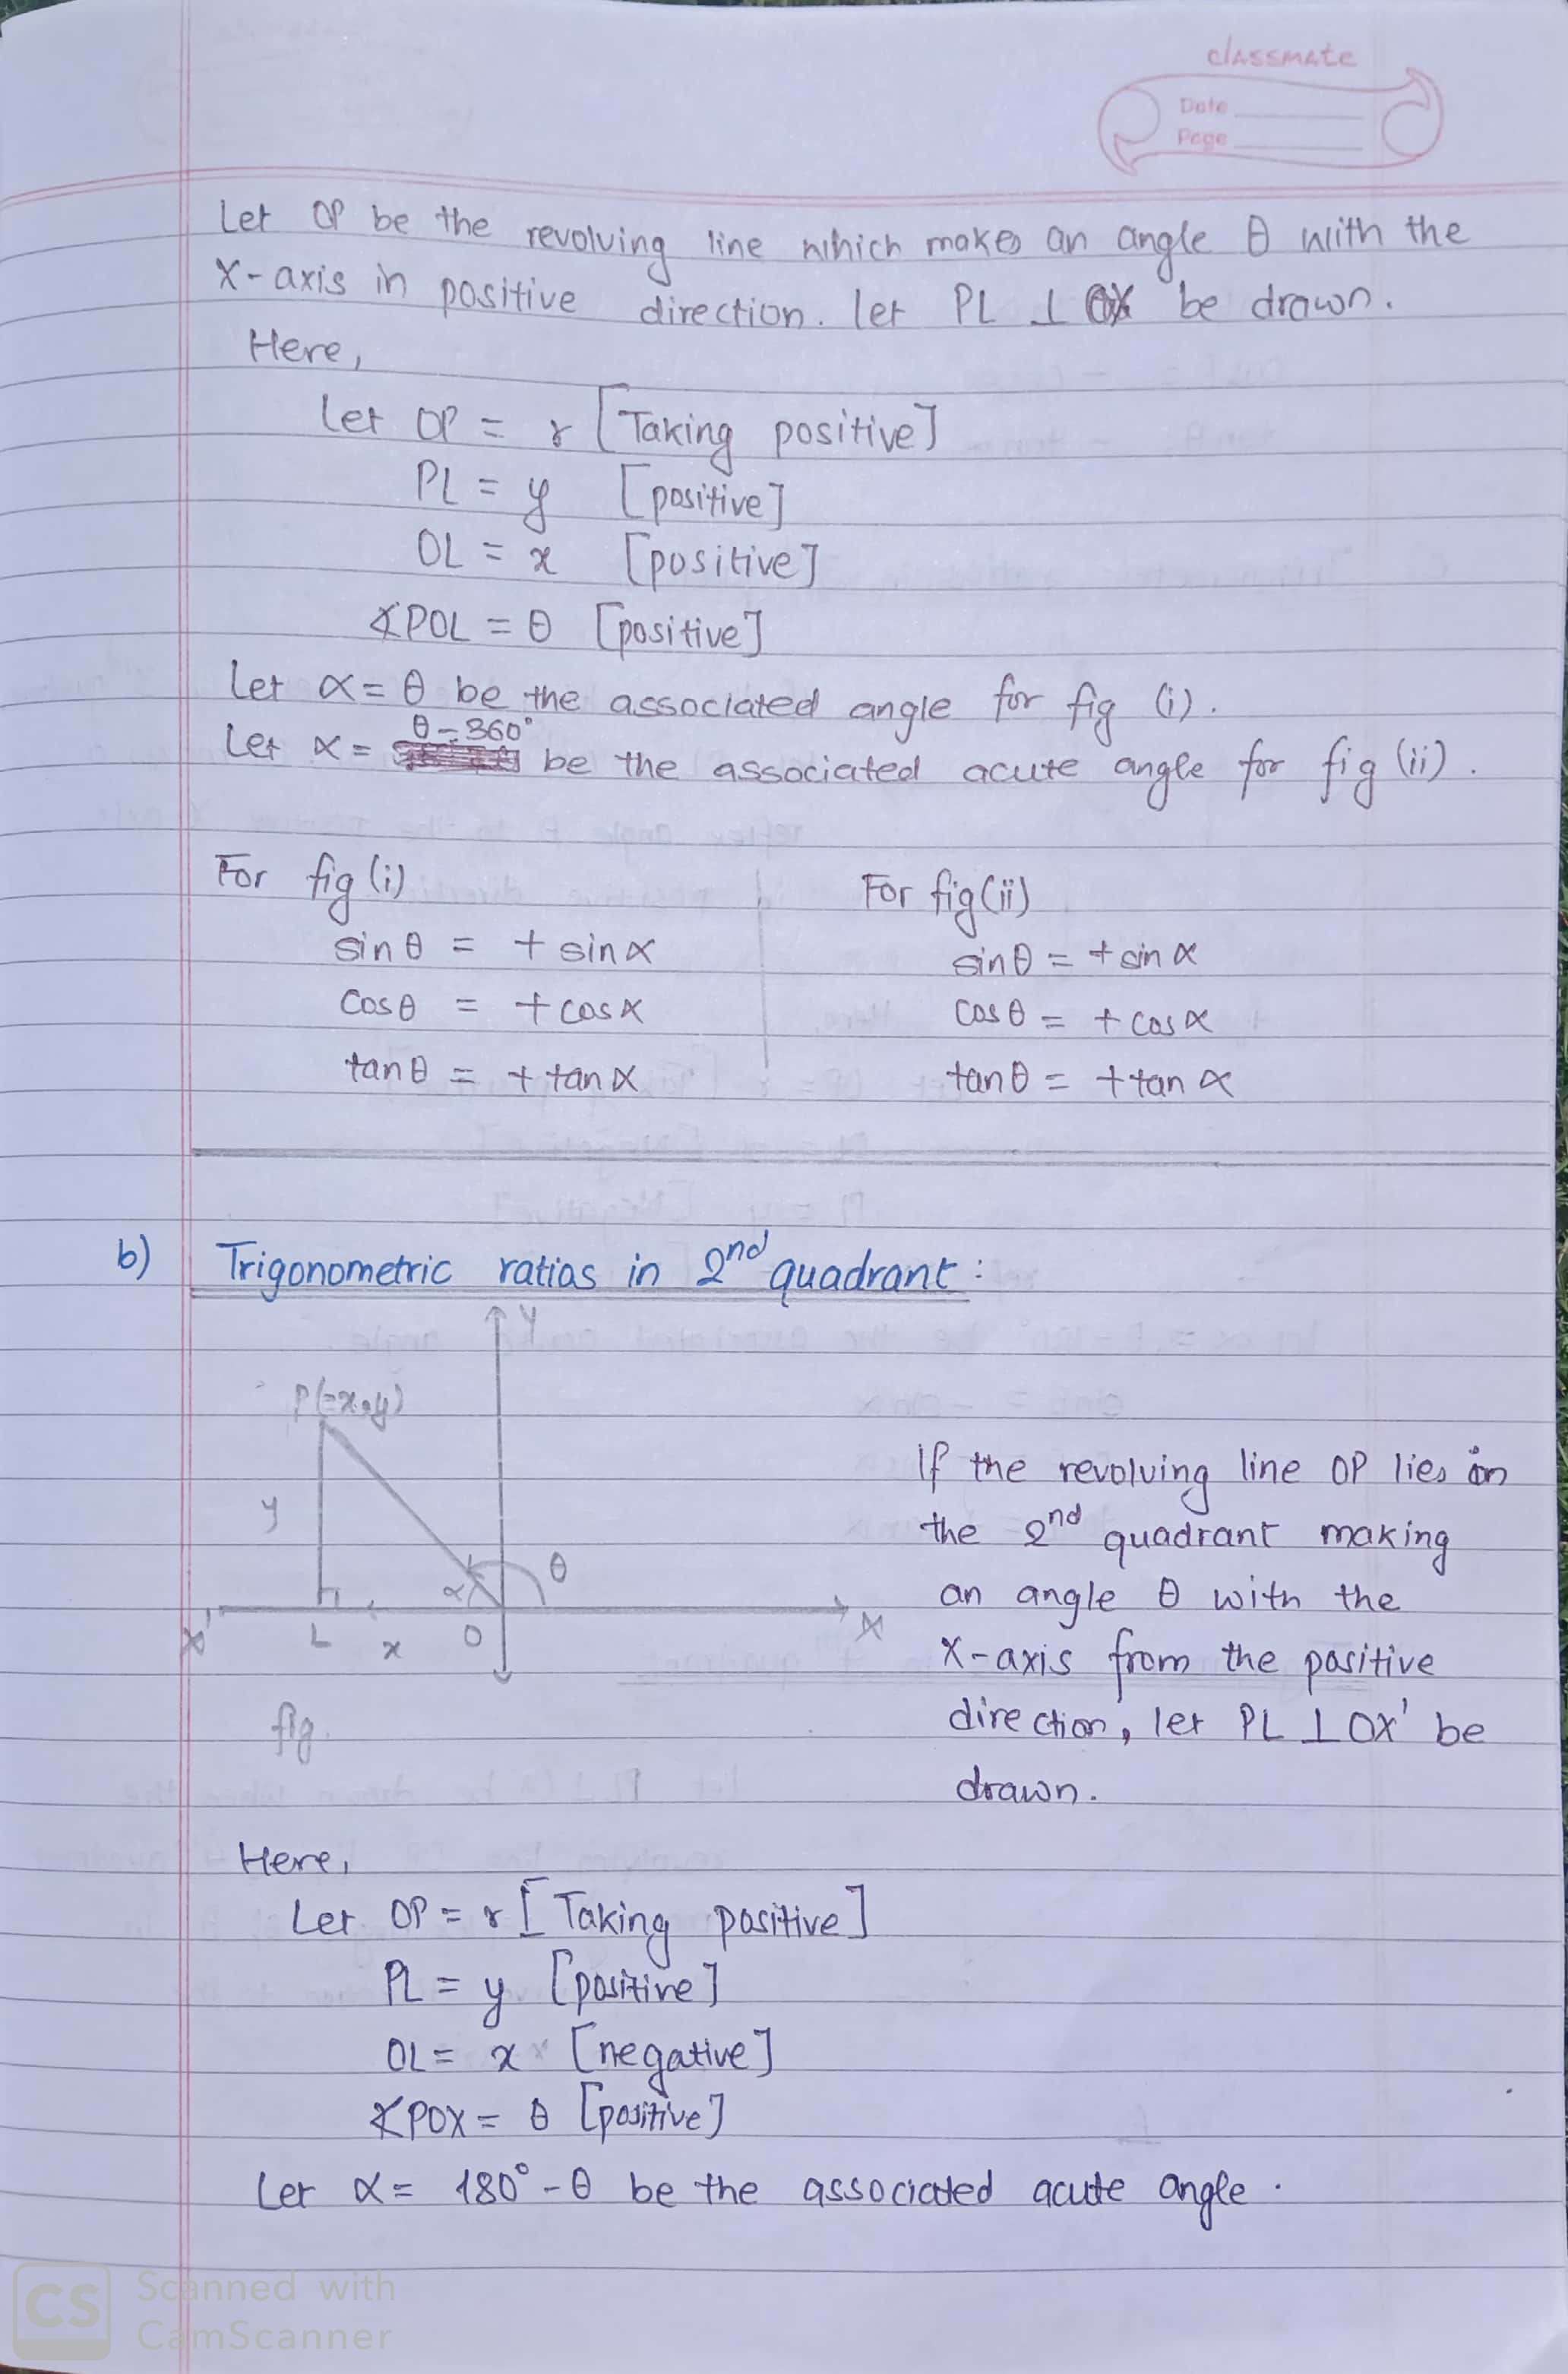 classmate
Date
Page
Let OP be the revolving line which makes an angle θ with the
X-axis in positive direction. let PL ⊥ OX be drawn.
Here,
Let OP = r [Taking positive]
PL = y [positive]
OL = x [positive]
∡POL = θ [positive]
Let α = θ be the associated angle for fig (i).
Let α = θ - 360° be the associated acute angle for fig (ii).
For fig (i)
sin θ = + sin α
Cos θ = + cos α
tan θ = + tan α
For fig (ii)
sin θ = + sin α
Cos θ = + cos α
tan θ = + tan α
b) Trigonometric ratios in 2nd quadrant :
Y
P(-x, y)
y
α
θ
X'
L
x
O
X
fig.
If the revolving line OP lies in
the 2nd quadrant making
an angle θ with the
X-axis from the positive
direction, let PL ⊥ OX' be
drawn.
Here,
Let OP = r [Taking positive]
PL = y [positive]
OL = x [negative]
∡POX = θ [positive]
Let α = 180° - θ be the associated acute angle.
CS
Scanned with
CamScanner